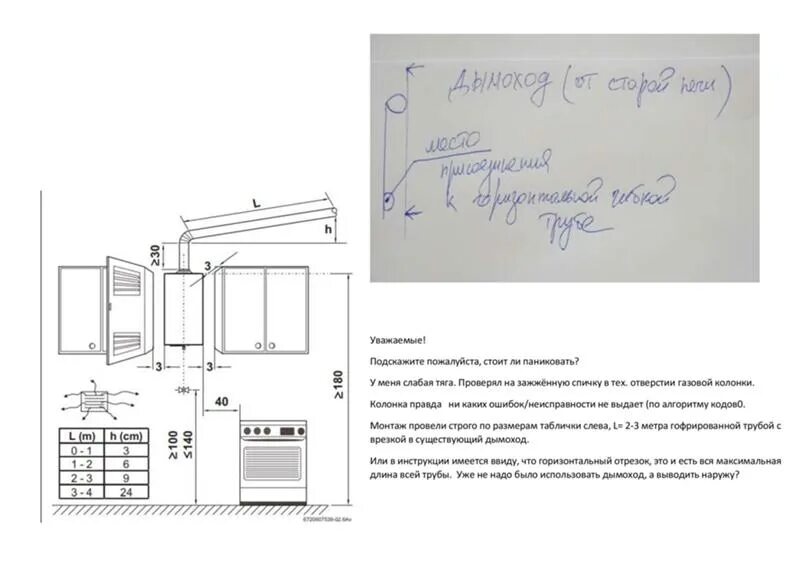 ДЫМОХОД (от старой печи)
место
присоединения
к горизонтальной гибкой
трубе
L
h
≥30
3
3
3
40
≥180
≥100
≤140
L (m) h (cm)
0 - 1 3
1 - 2 6
2 - 3 9
3 - 4 24
6720607539-02.6Av
Уважаемые!
Подскажите пожалуйста, стоит ли паниковать?
У меня слабая тяга. Проверял на зажжённую спичку в тех. отверстии газовой колонки.
Колонка правда ни каких ошибок/неисправности не выдает (по алгоритму кодов0.
Монтаж провели строго по размерам таблички слева, L= 2-3 метра гофрированной трубой с
врезкой в существующий дымоход.
Или в инструкции имеется ввиду, что горизонтальный отрезок, это и есть вся максимальная
длина всей трубы. Уже не надо было использовать дымоход, а выводить наружу?